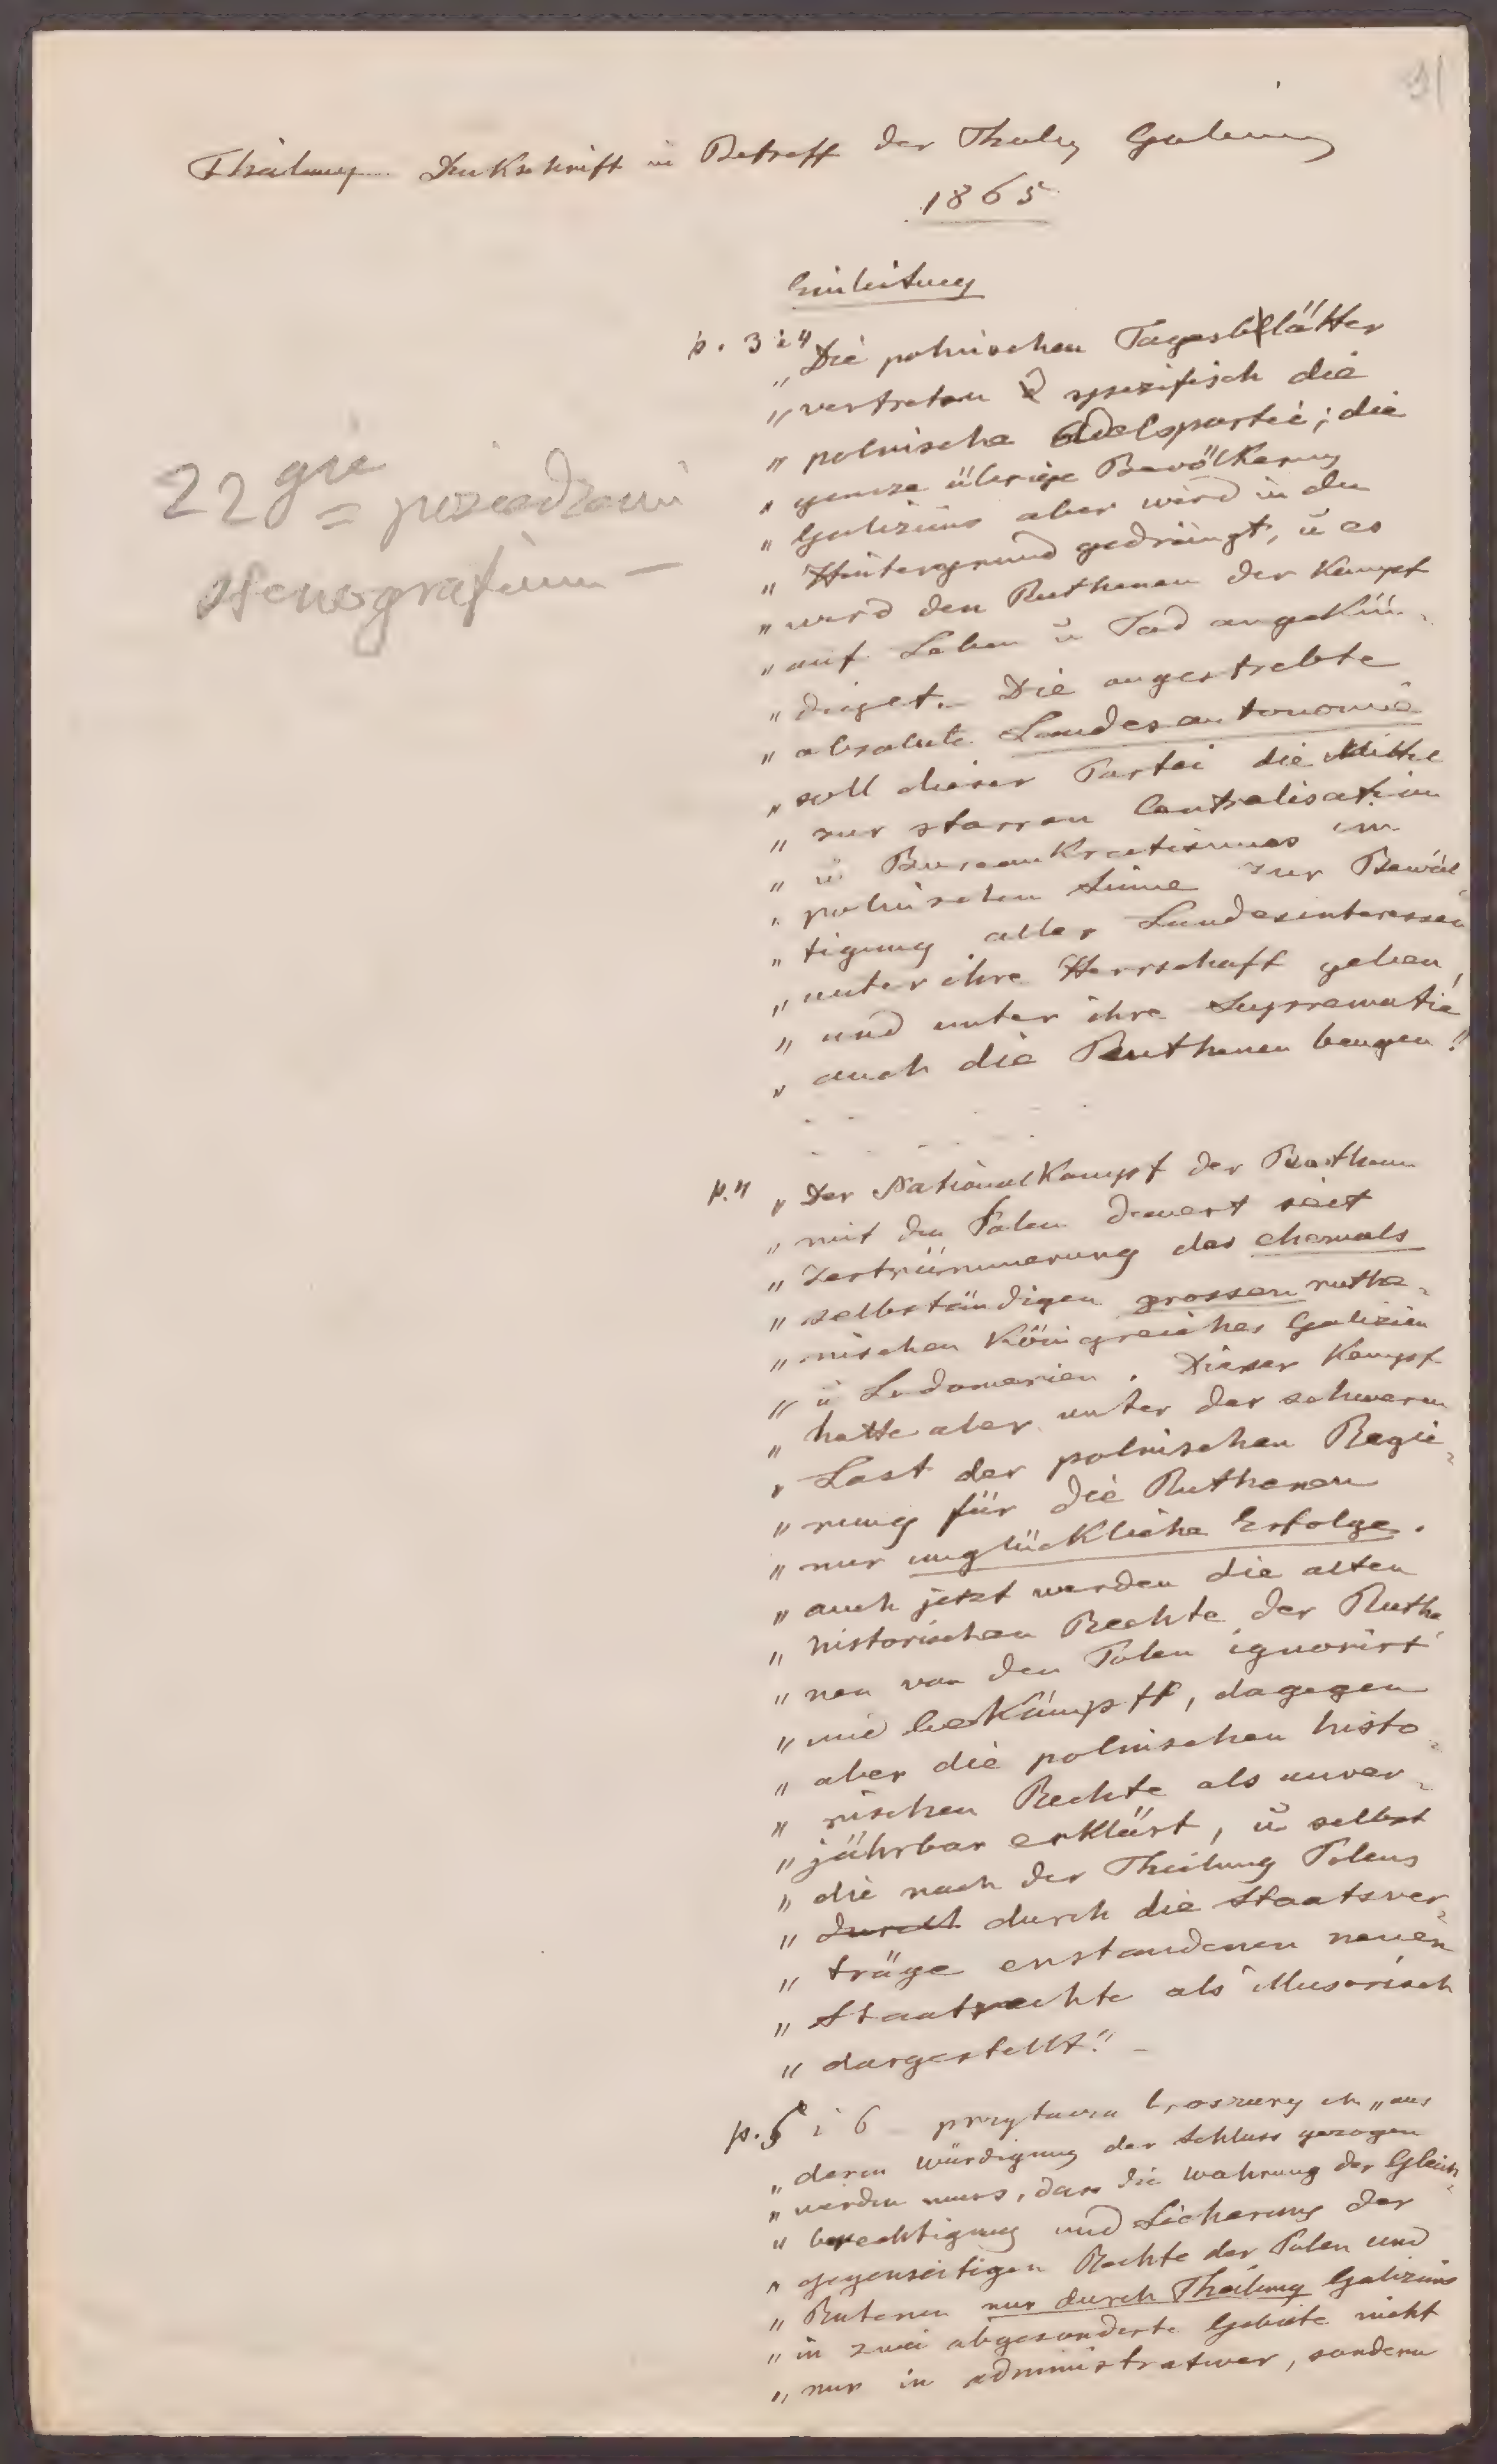 91
Theilung Denkschrift in Betreff der Theilg Galiziens
1865
Einleitung
p. 3 i 4
„ Die polnischen Tagesblätter
„ vertreten spezifisch die
„ polnische Adelspartei; die
„ ganze übrige Bevölkerung
„ Galiziens aber wird in den
„ Hintergrund gedrängt, ū es
„ wird den Ruthenen der Kampf
„ auf Leben ū Tod angekün-
„ diget. – Die angestrebte
„ absolute Landesautonomie
„ soll dieser Partei die Mittel
„ zur starren Centralisation
„ ū Bureaukratismus im
„ polnischen Sinne zur Bewäl-
„ tigung aller Landesinteressen
„ unter ihre Herrschaft geben,
„ und unter ihre Suprematie
„ auch die Ruthenen beugen!"
22 gie = posiedzenie
stenografium –
p. 4 „ Der Nationalkampf der Ruthenen
„ mit den Polen dauert seit
„ Zertrümmerung des ehemals
„ selbständigen grossen ruthe-
„ nischen Königreiches Galizien
„ ū Lodomerien. Dieser Kampf
„ hatte aber unter der schweren
„ Last der polnischen Regie-
„ rung für die Ruthenen
„ nur unglückliche Erfolge.
„ auch jetzt werden die alten
„ historischen Rechte der Ruthe-
„ nen von den Polen ignorirt
„ und bekämpft, dagegen
„ aber die polnischen histo-
„ rischen Rechte als unver-
„ jährbar erklärt, ū selbst
„ die nach der Theilung Polens
„ durch durch die Staatsver-
„ träge enstandenen neuen
„ Staatsrechte als illusorisch
„ dargestellt." –
p. 5 i 6 – przytacza broszury „ aus
„ deren Würdigung der Schluss gezogen
„ werden muss, dass die Wahrung der Gleich-
„ berechtigung und Sicherung der
„ gegenseitigen Rechte der Polen und
„ Rutenen nur durch Theilung Galiziens
„ in zwei abgesonderte Gebiete nicht
„ nur in administrativer, sondern